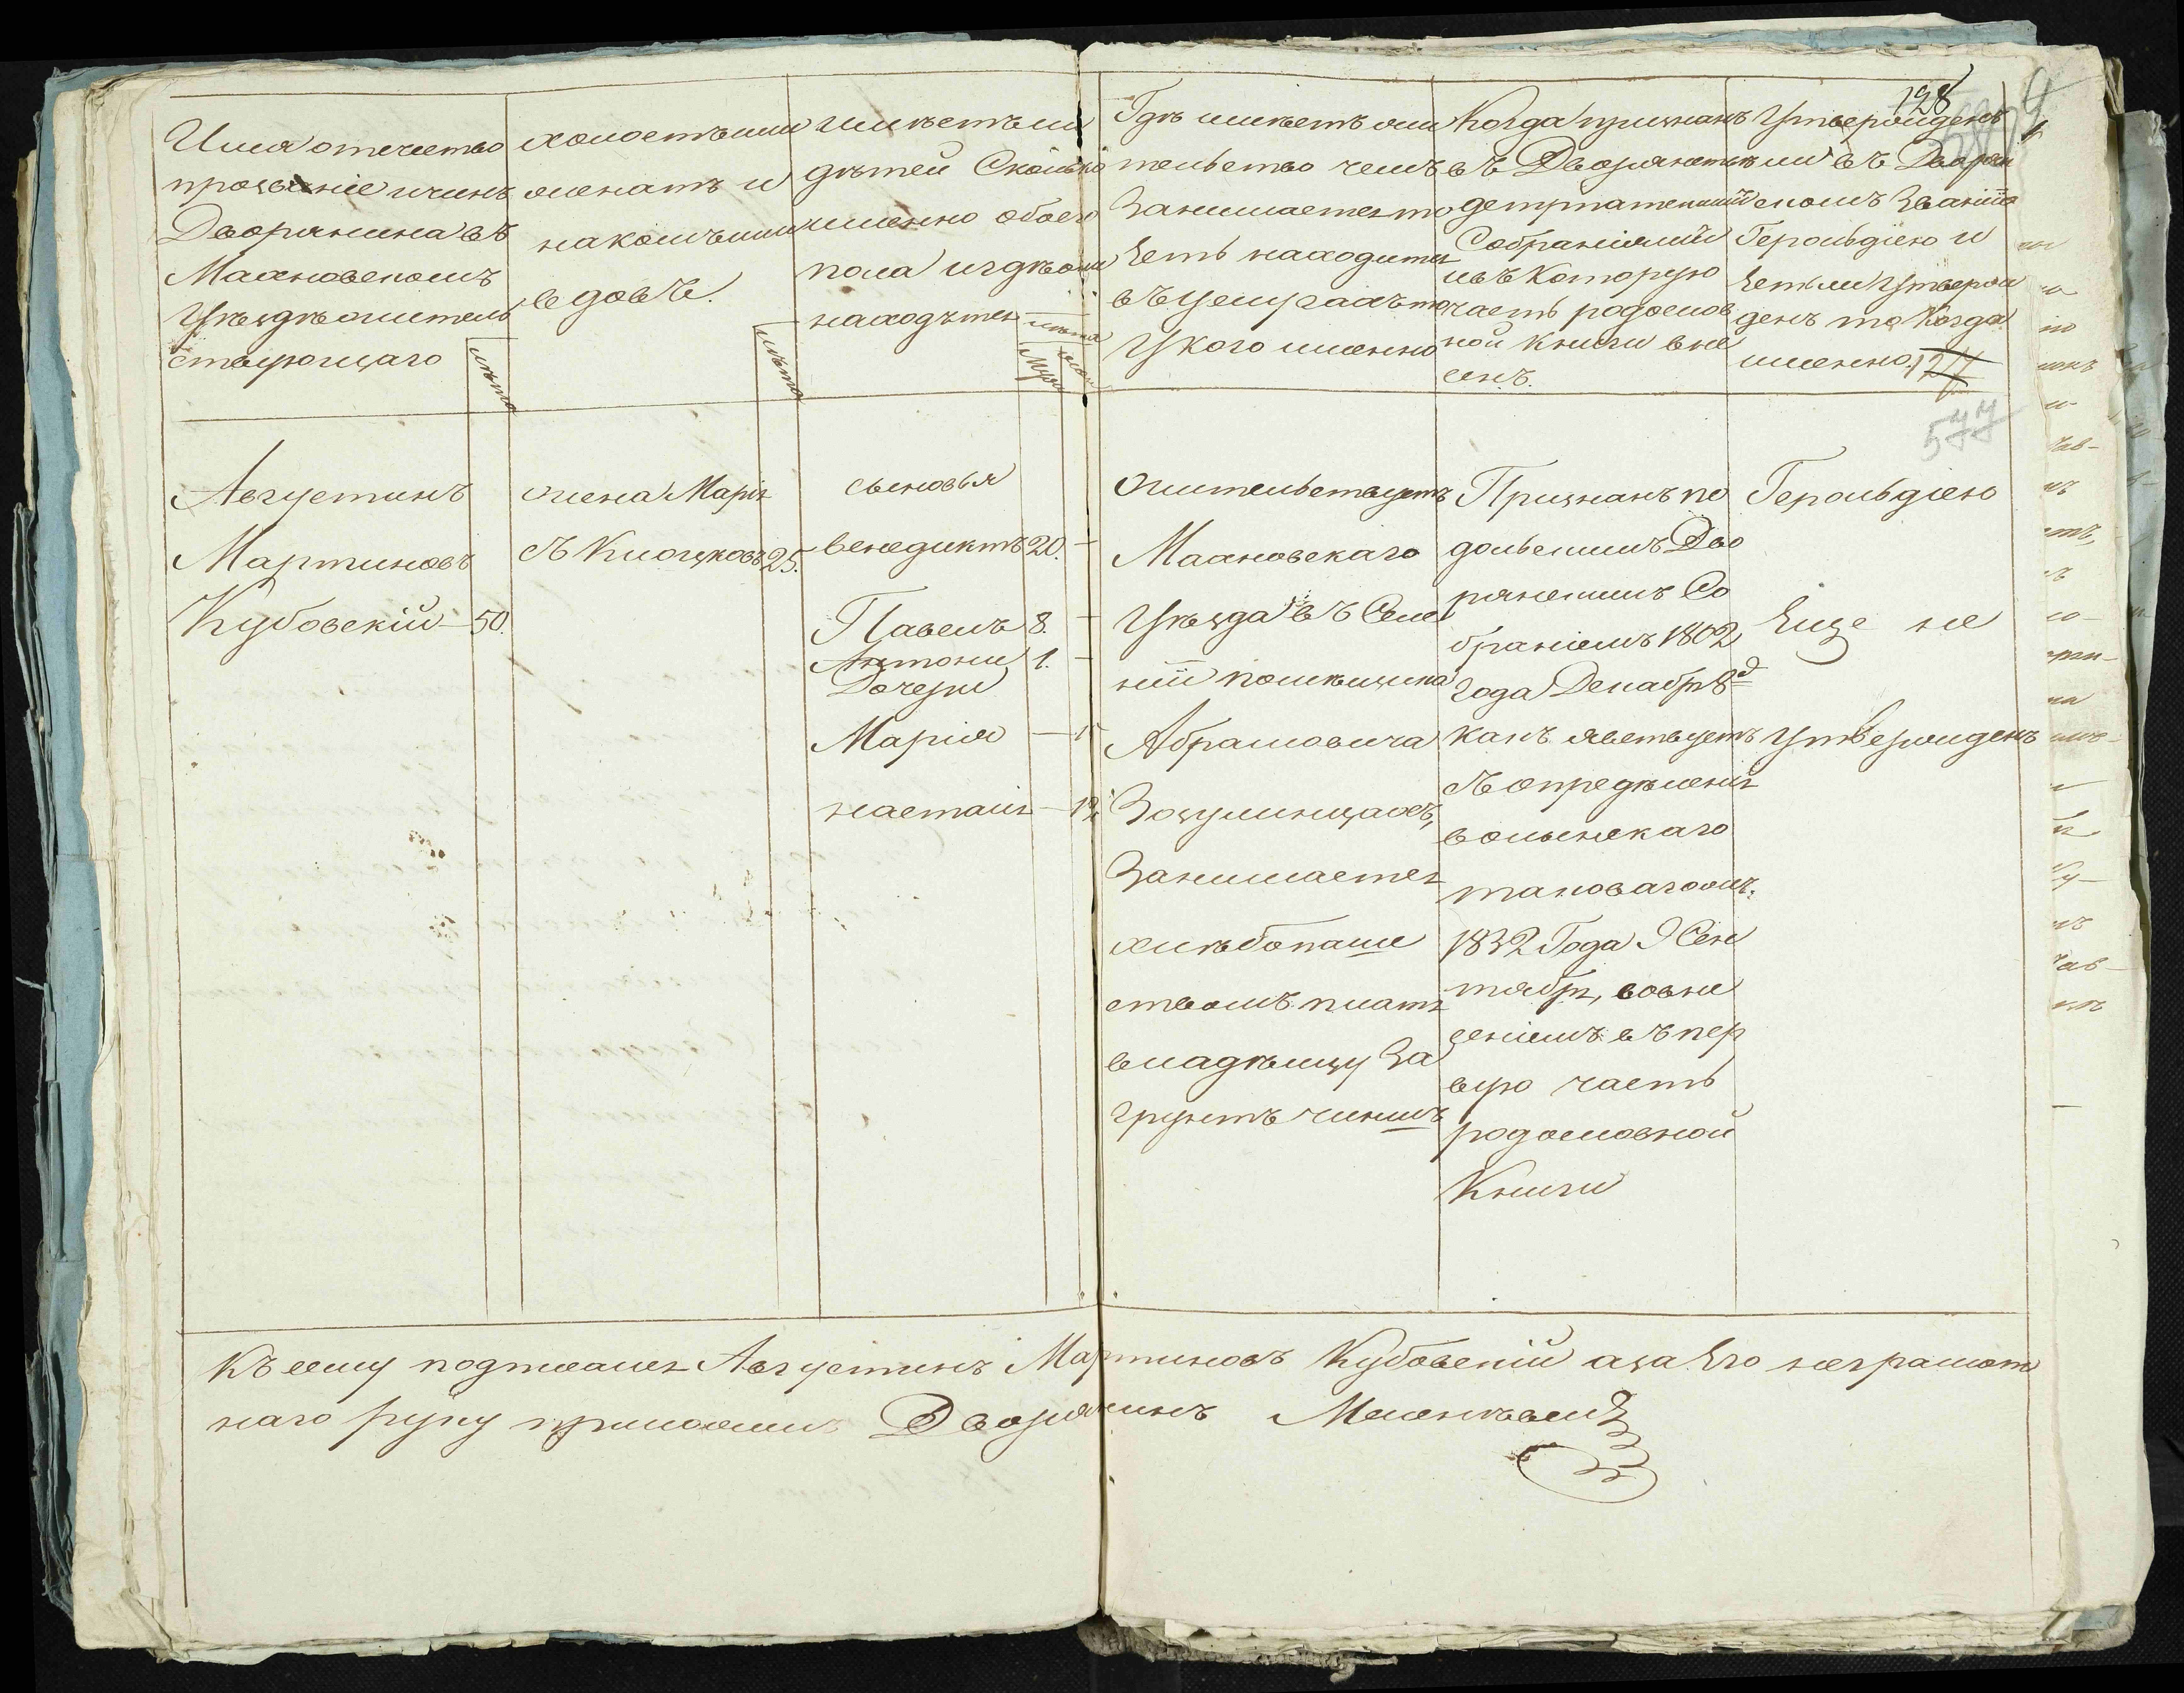 Имя отчество
прозваніе и чинъ
Дворянина въ
Махновскомъ
Уѣздѣ жительствующаго
лѣта
холостъ или
женатъ и
на комъ или
вдовъ.
лѣта
Имѣетъ ли
дѣтей Сколько
именно обоего
пола и гдѣ они
находятся
лѣта
Муж
жен
Гдѣ имѣетъ жи
тельство чемъ
Занимается то
Есть находится
въ услугахъ то
У кого именно
Когда признанъ
въ Дворянствѣ
депутатскимъ
Собраніемъ
и въ Которую
часть родослов
ной Книги вне
сенъ.
128
Утвержденъ
ли въ Дворян
скомъ Званіи
Герольдіею и
Естьли Утверж
денъ то Когда
именно.
577
Августинъ
Мартиновъ
Кубовскій 50.
жена Марія
25.
сыновья
венедиктъ 20. —
Павелъ 8. —
Антони 1. —
Дочери
Марія —
настасія —
жительствуетъ
Махновскаго
Уѣзда въ Селе
ніи помѣщика
Абрамовича
Зозулинцахъ,
Занимается
хлѣбопаше
ствомъ платя
владѣльцу За
грунтъ чиншъ
Признанъ по
дольскимъ Дво
рянскимъ Со
браніемъ 1802
Года Декабря 8д
какъ явствуетъ
съ опредѣленія
волынскаго
таковагожъ.
1832 Года 9 Сен
тября, со вне
сеніемъ въ пер
вую часть
родословной
Книги
Герольдіею
Еще не
утвержденъ
Къ сему подписался Августинъ Мартиновъ Кубовскій а за Его неграмот
наго руку приложилъ Дворянинъ